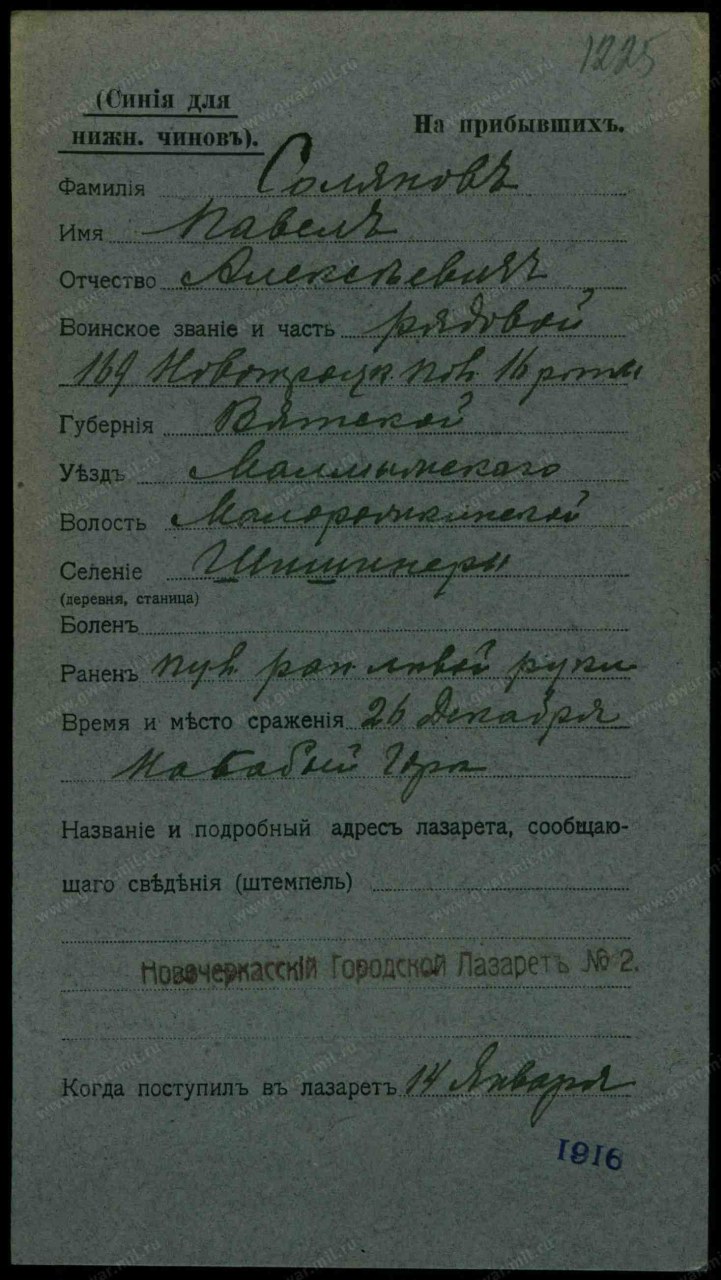 1225
(Синія для
нижн. чиновъ).
На прибывшихъ.
Фамилія Соляновъ
Имя Павелъ
Отчество Алексѣевичъ
Воинское званіе и часть рядовой
169 Новотроцк пол 16 роты
Губернія Вятской
Уѣздъ Малмыжскаго
Волость
Селеніе Шишинеры
(деревня, станица)
Боленъ
Раненъ пул ран лѣвой руки
Время и мѣсто сраженія 26 Декабря
Горы
Названіе и подробный адресъ лазарета, сообщаю-
щаго свѣдѣнія (штемпель)
Новочеркасскій Городской Лазаретъ № 2.
Когда поступилъ въ лазаретъ 14 Января
1916
www.gwar.mil.ru